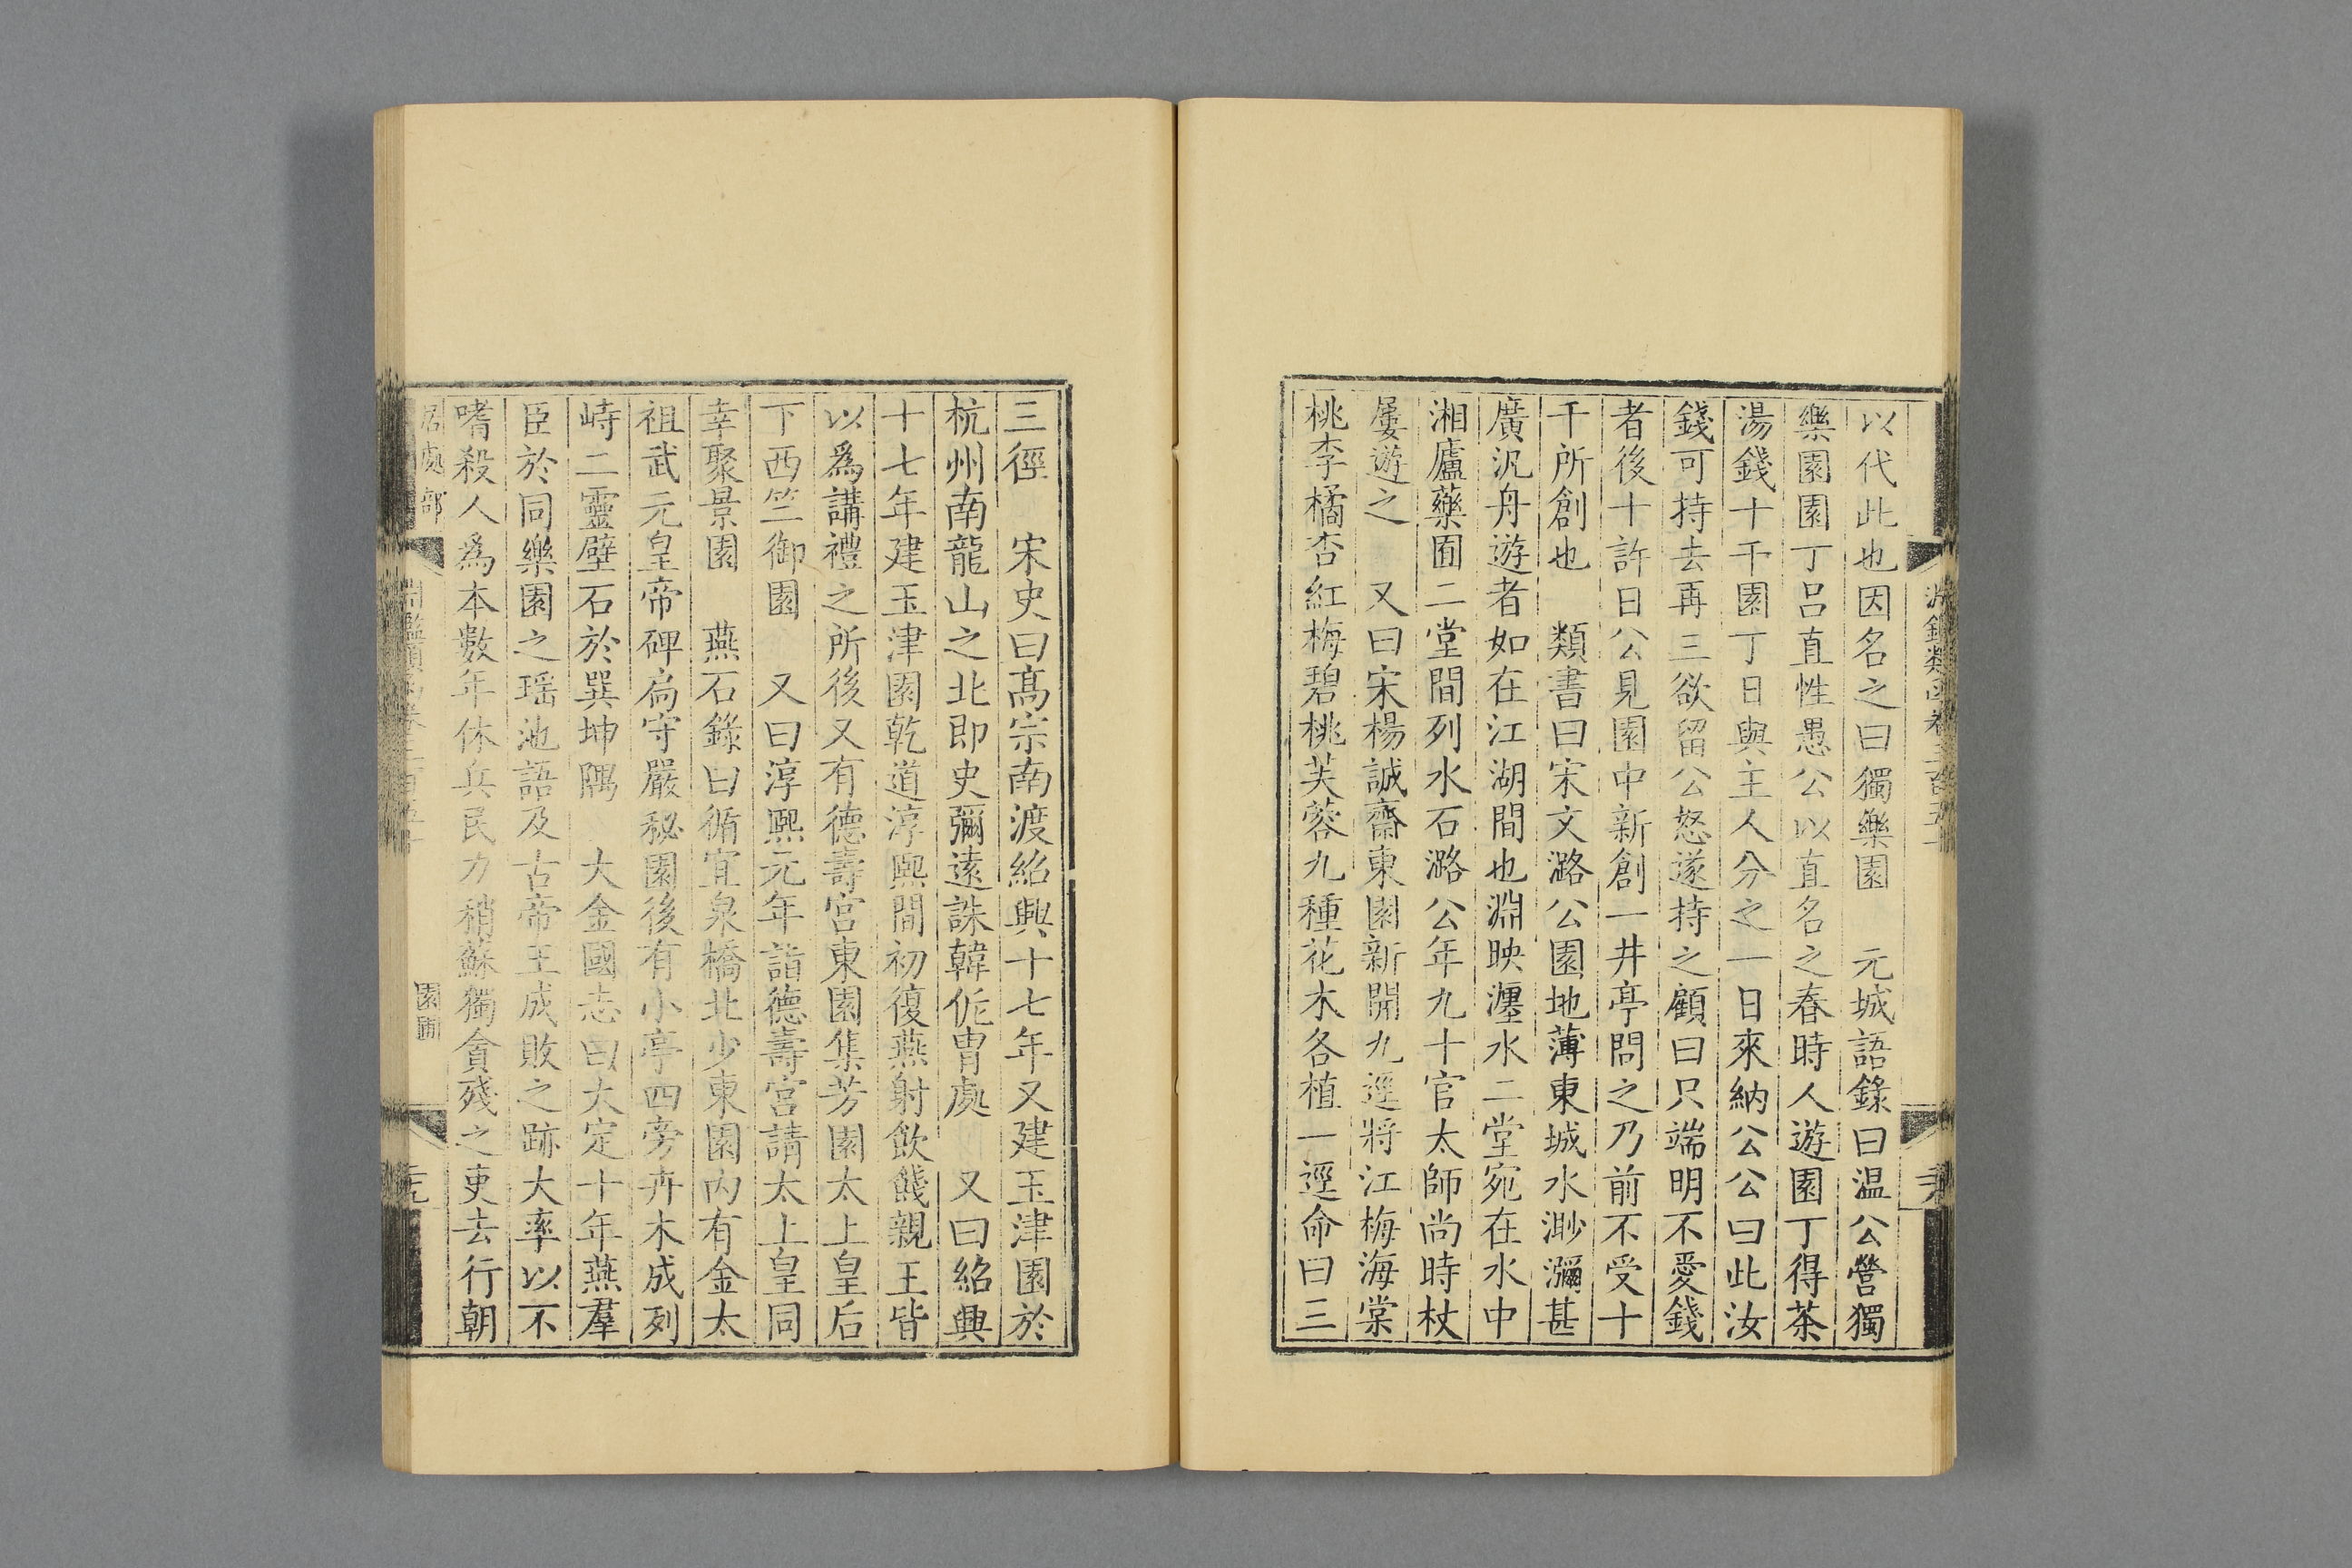 以代此也因名之曰獨樂園　元城語錄曰温公營獨
樂園園丁呂直性愚公以直名之春時人遊園丁得茶
湯錢十千園丁日與主人分之一日來納公公曰此汝
錢可持去再三欲留公怒遂持之顧曰只端明不愛錢
者後十許日公見園中新創一井亭問之乃前不受十
千所創也　類書曰宋文潞公園地薄東城水渺瀰甚
廣汎舟遊者如在江湖間也淵映瀍水二堂宛在水中
湘廬藥圃二堂間列水石潞公年九十官太師尚時杖
屨遊之　又曰宋楊誠齋東園新開九逕將江梅海棠
桃李橘杏紅梅碧桃芙蓉九種花木各植一逕命曰三
三徑　宋史曰髙宗南渡紹興十七年又建玉津園於
杭州南龍山之北即史彌遠誅韓侂冑處　又曰紹興
十七年建玉津園乾道淳熙間初復燕射飲餞親王皆
以爲講禮之所後又有德壽宫東園集芳園太上皇后
下西竺御園　又曰淳熙元年詣德壽宫請太上皇同
幸聚景園　燕石錄曰循宜泉橋北少東園内有金太
祖武元皇帝碑扃守嚴秘園後有小亭四旁卉木成列
峙二靈壁石於巽坤隅　大金國志曰大定十年燕羣
臣於同樂園之瑶池語及古帝王成敗之跡大率以不
嗜殺人爲本數年休兵民力稍蘇獨貪殘之吏去行朝
居處部
園圃